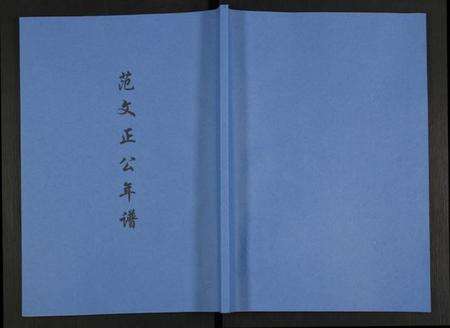 范文正公年谱